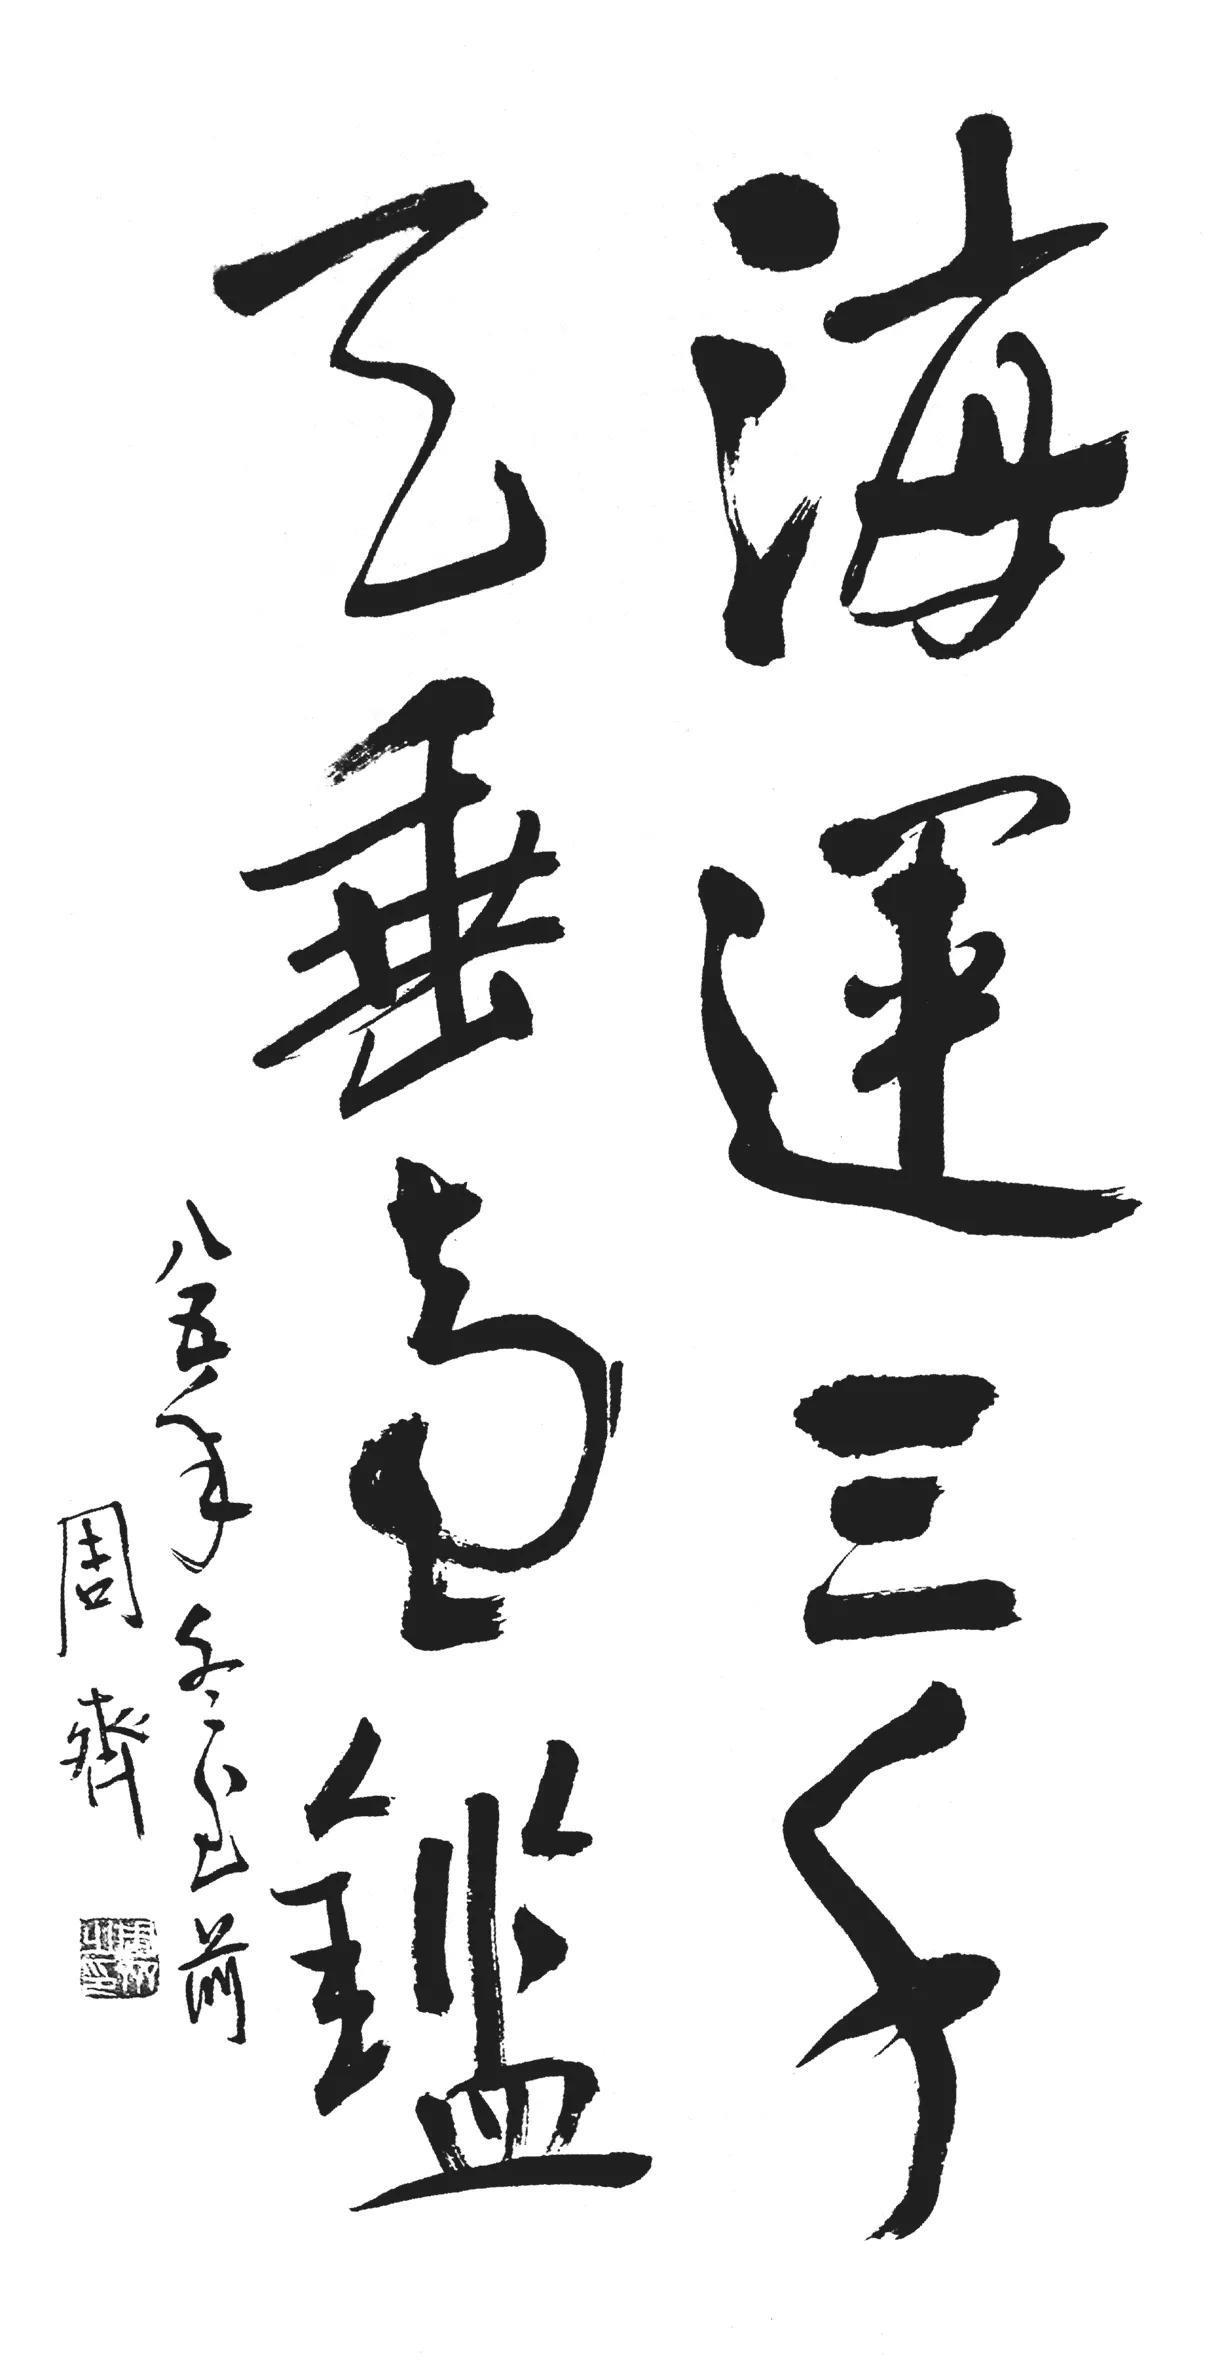 海運三千
天垂高鑑
八五年冬至前
周齊